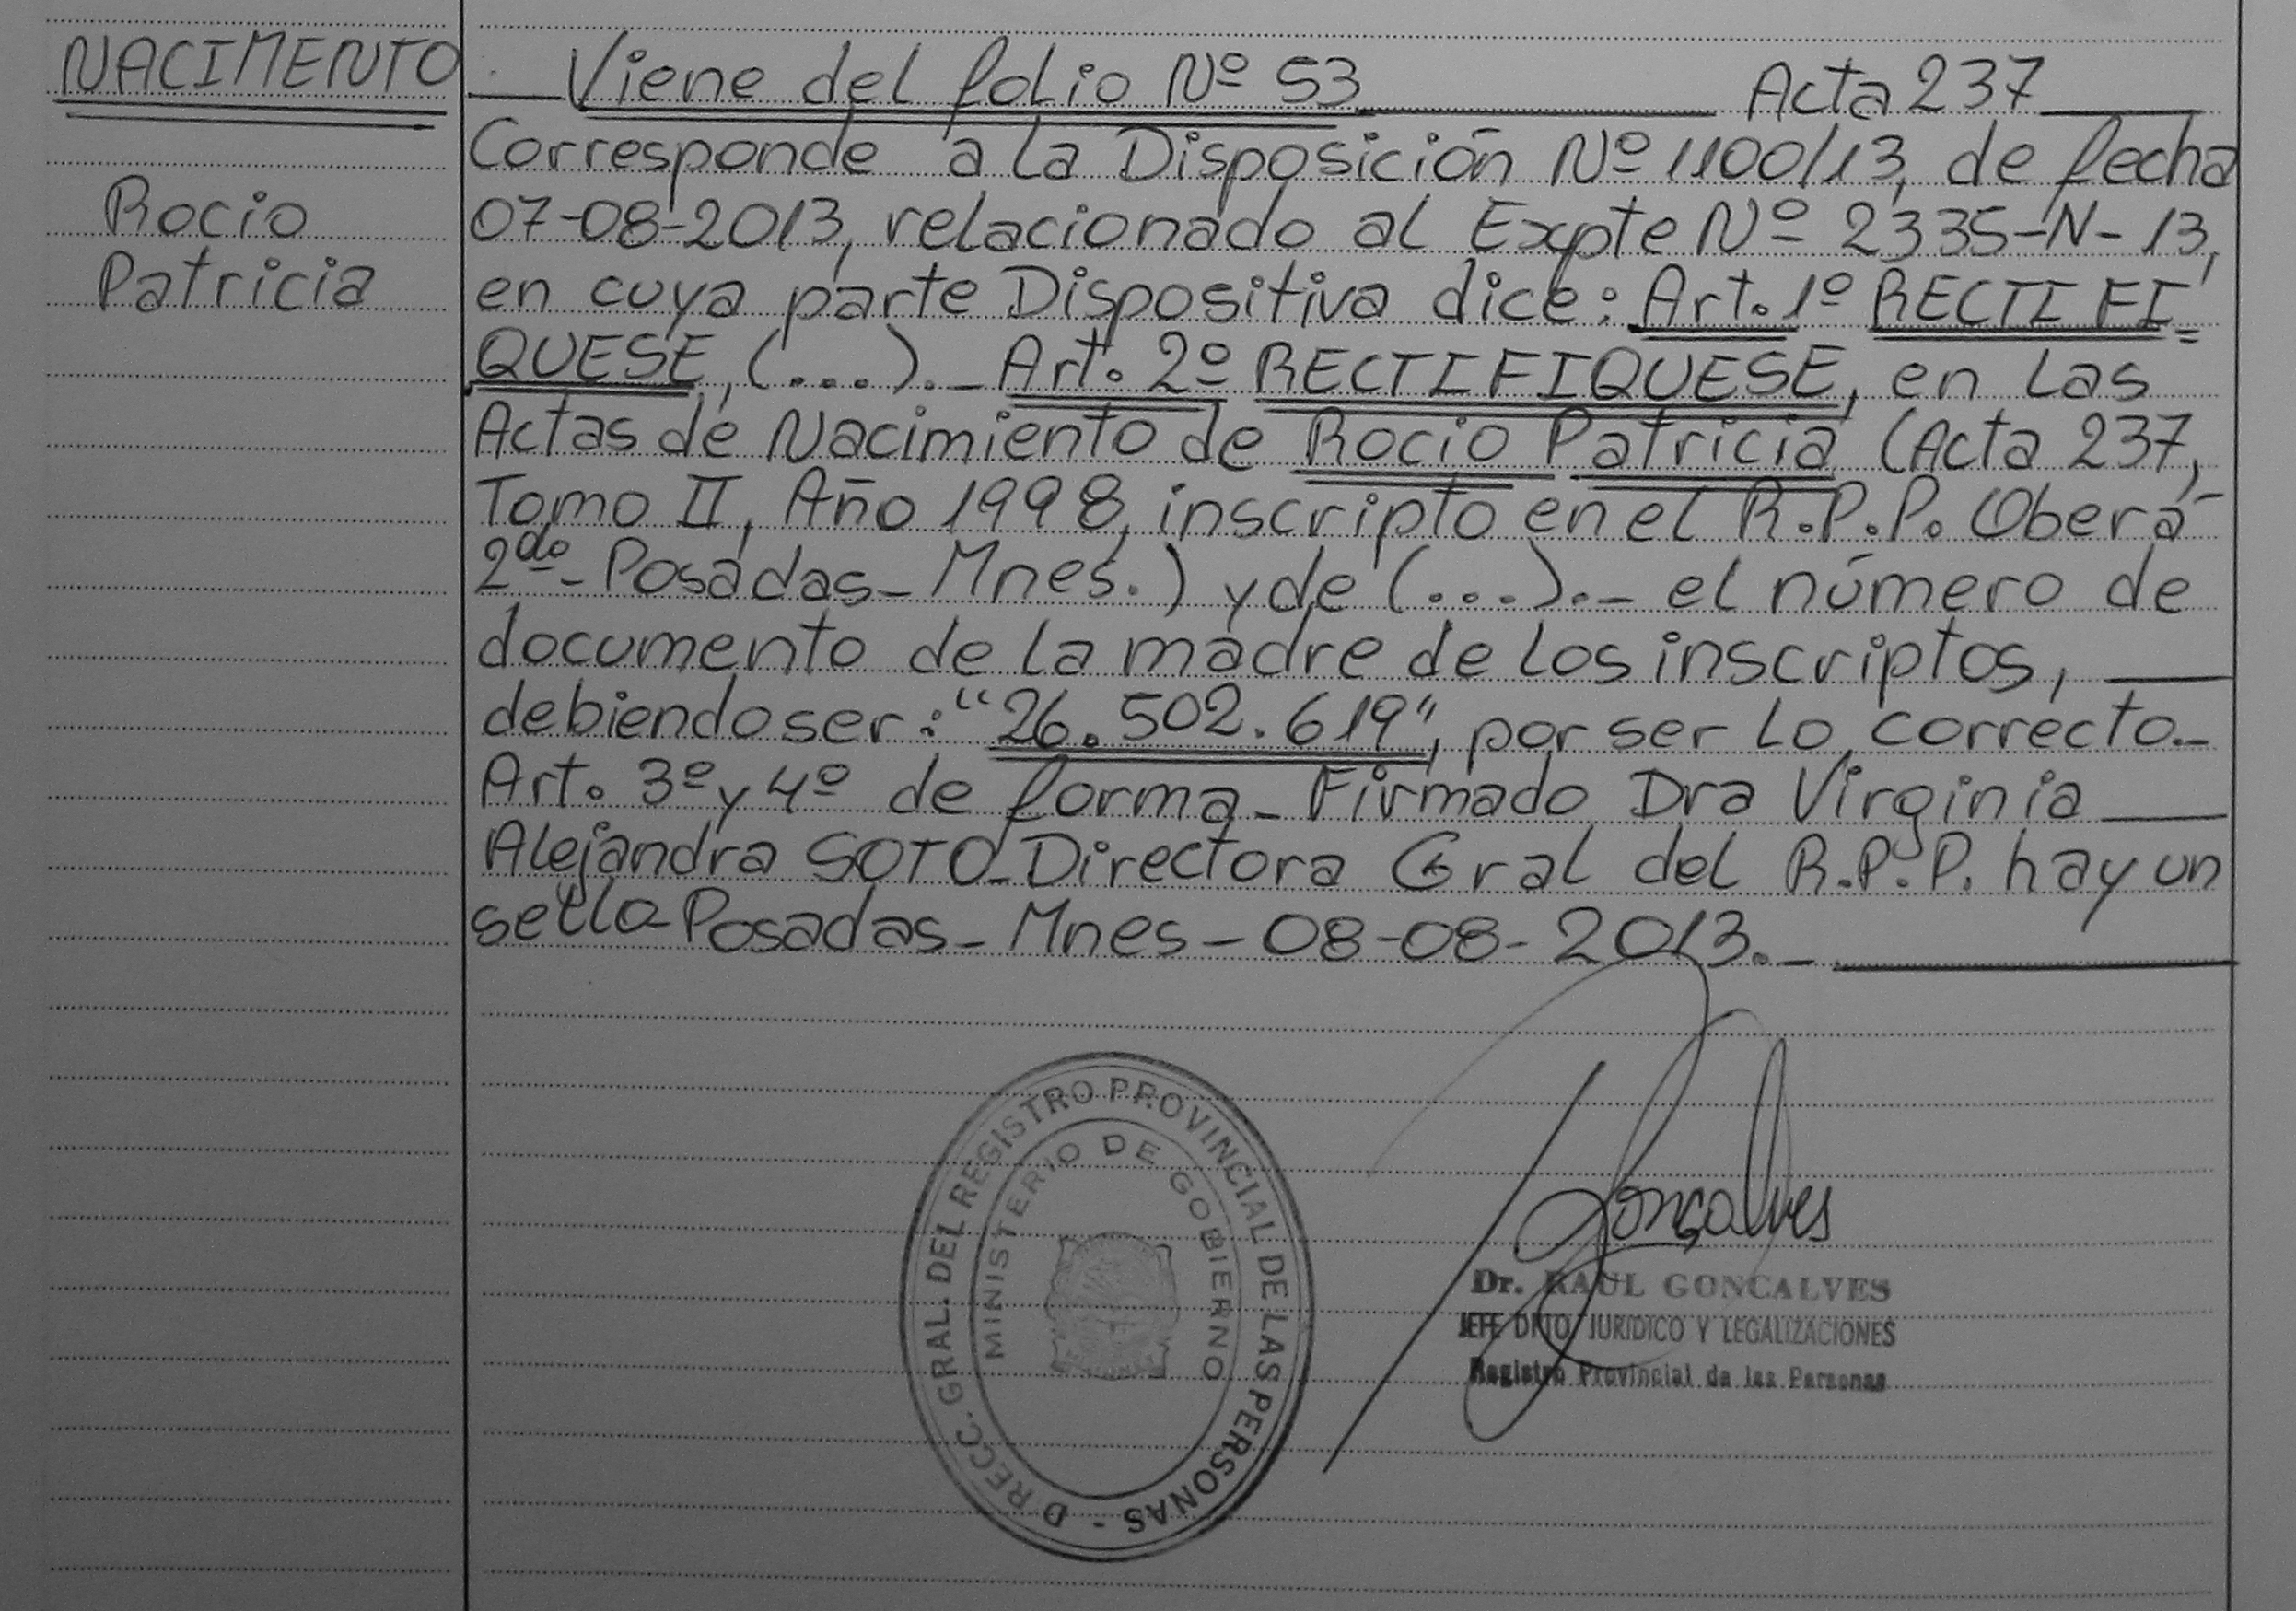 NACIMENTO
Rocio
Patricia
Viene del folio Nº 53 Acta 237
Corresponde a la Disposición Nº 1100/13, de fecha
07-08-2013, relacionado al Expte Nº 2335-N-13,
en cuya parte Dispositiva dice: Art. 1º RECTIFI=
QUESE, (...)._ Art. 2º RECTIFIQUESE, en las
Actas de Nacimiento de Rocio Patricia (Acta 237,
Tomo II, Año 1998, inscripto en el R.P.P. Oberá-
2do_ Posadas_ Mnes.) y de (...)._ el número de
documento de la madre de los inscriptos,
debiendo ser: "26.502.619", por ser lo correcto._
Art. 3º y 4º de forma_ Firmado Dra Virginia
Alejandra SOTO_Directora Gral del R.P.P. hay un
sello-Posadas_ Mnes_08-08-2013._
D RECC. GRAL. DEL REGISTRO PROVINCIAL DE LAS PERSONAS -
MINISTERIO DE GOBIERNO
Gonçalves
Dr. RAUL GONCALVES
JEFE DPTO. JURIDICO Y LEGALIZACIONES
Registro Provincial de las Personas